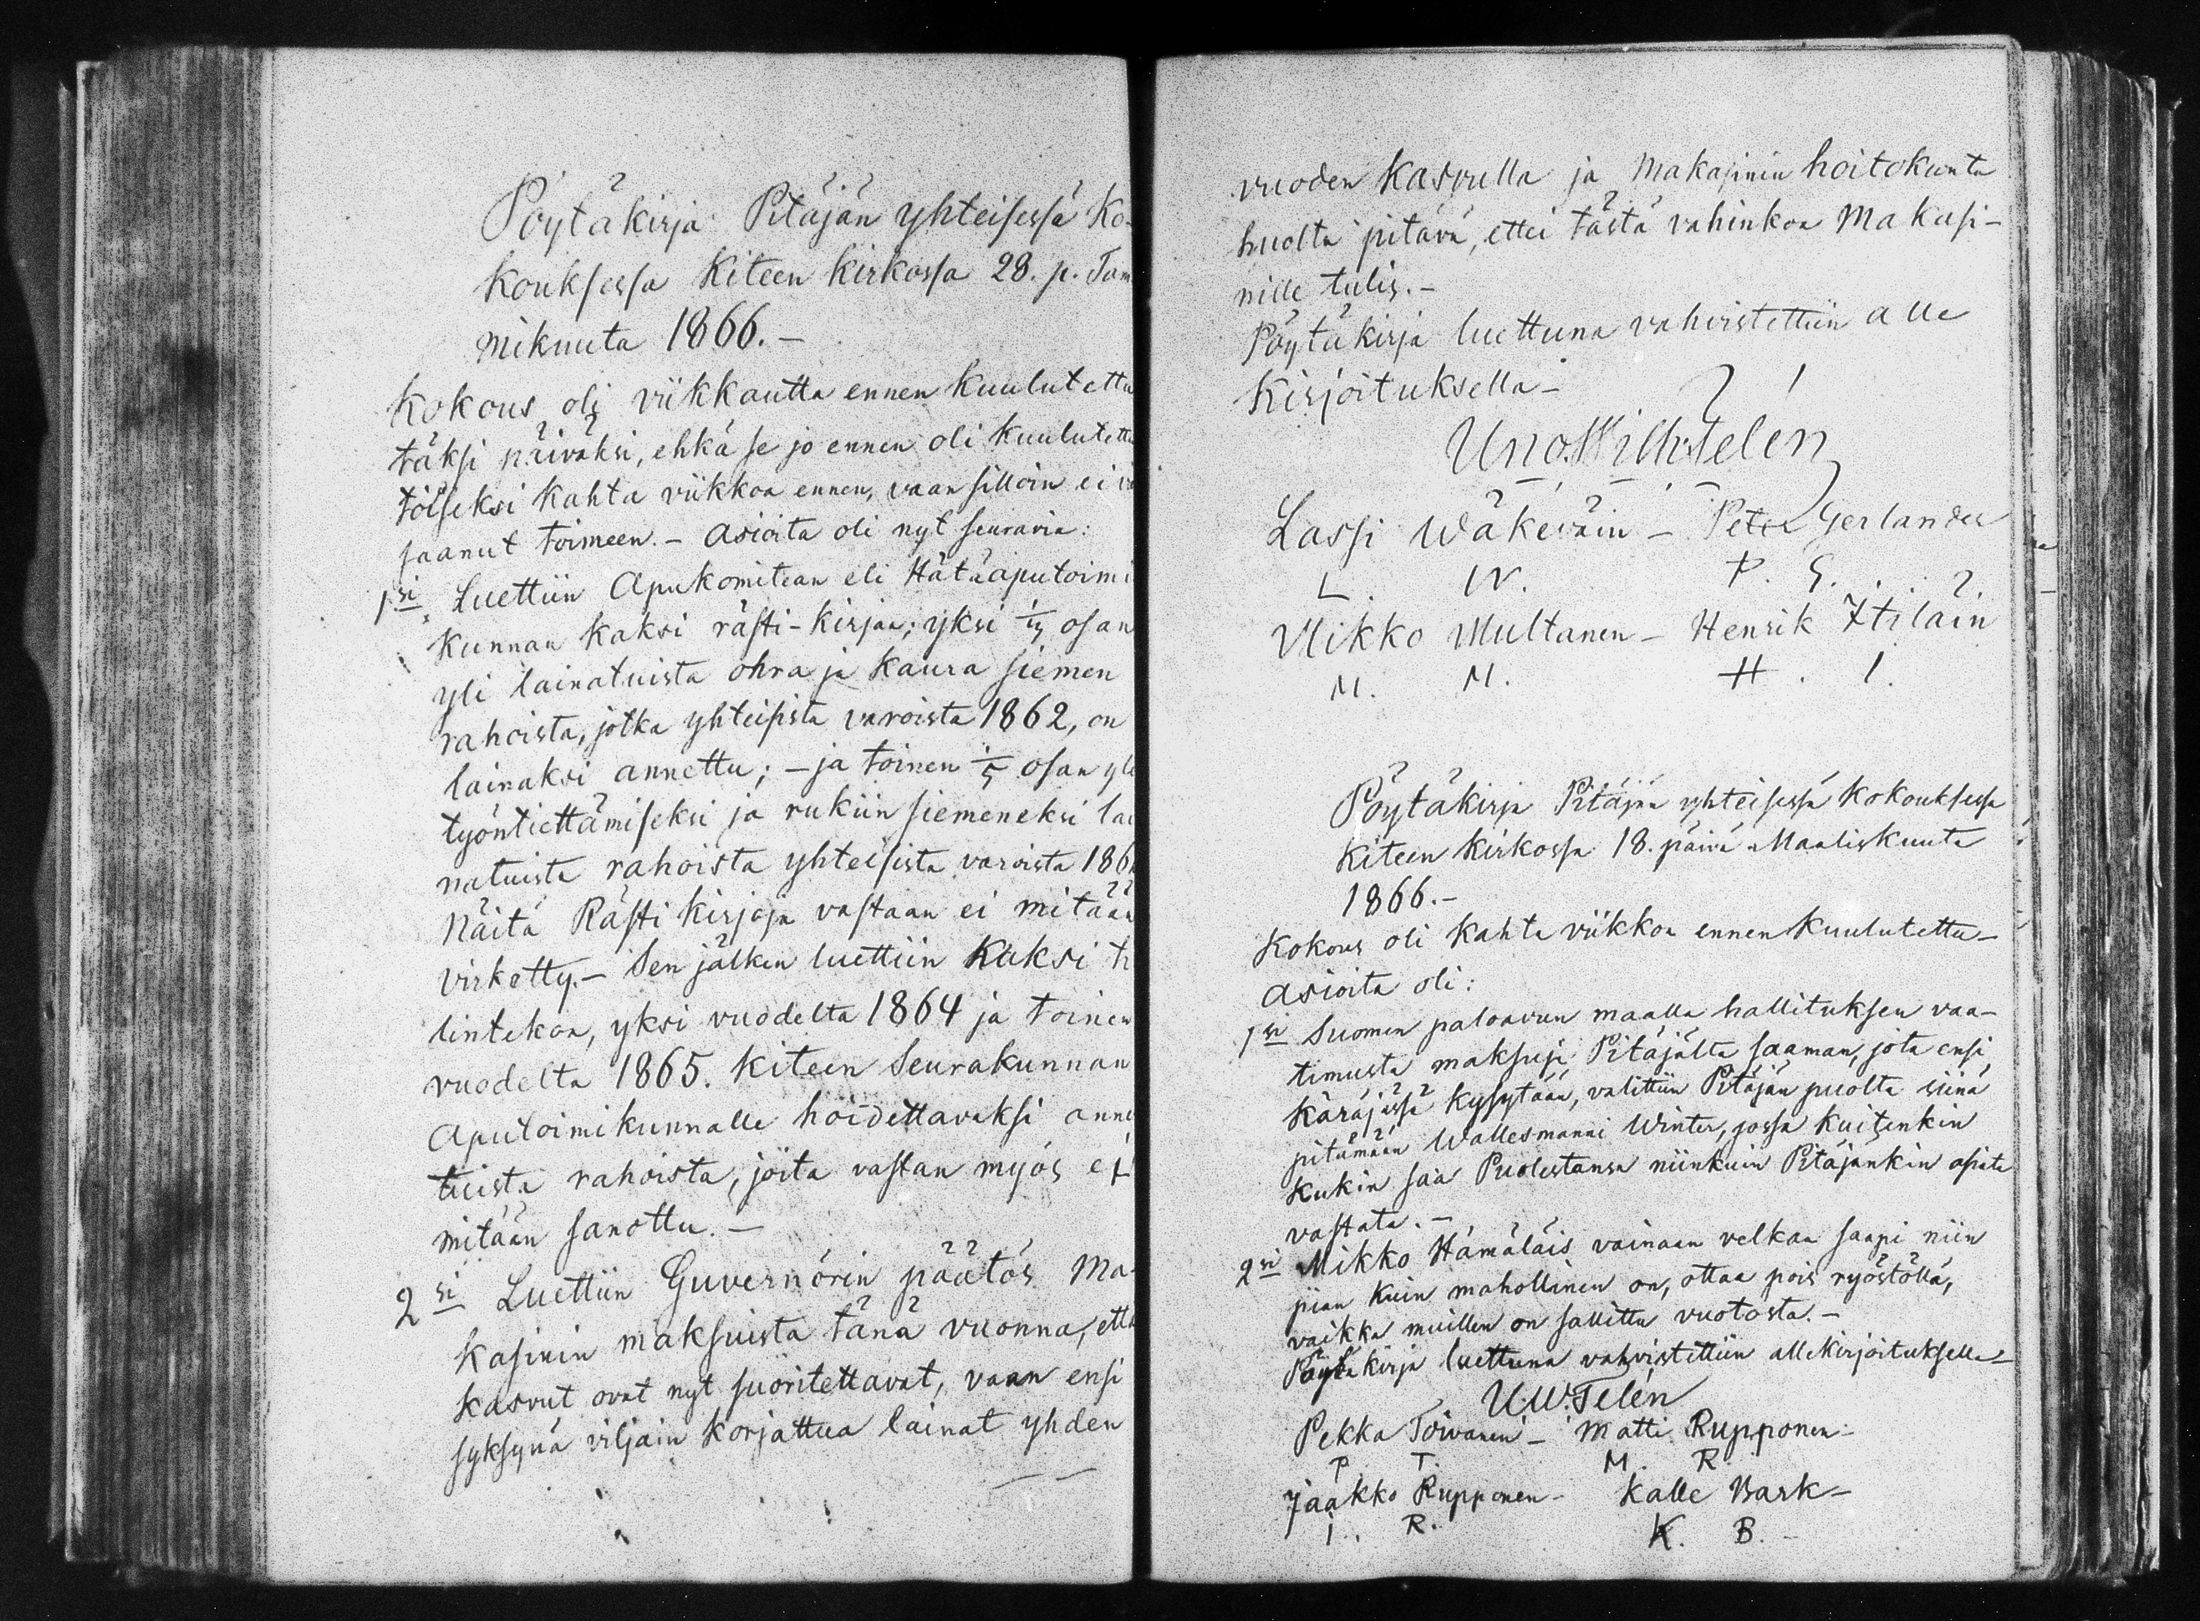 Pöytäkirja Pitäjän yhteisessä Ko-
kouksessa Kiteen kirkossa 28. p. Tam
mikuuta 1866. –
Kokous oli viikkautta ennen kuulutettu
täksi päiväksi, ehkä se jo ennen oli kuulutettu
toiseksi kahta viikkoa ennen, vaan silloin ei
saanut toimeen. – Asioita oli nyt seuravia:
1si Luettiin Apukomitean eli Hätäaputoimi
kunnan kaksi rästi-kirjaa; yksi osan
yli lainatuista ohra ja kaura siemen
rahoista, jotka yhteisistä varoista 1862, on
lainaksi annettu; – ja toinen 1/5 osan yli
työntiettämiseksi ja rukiin siemeneksi lai
natuista rahoista yhteisistä varoista 186
Näitä Rästi kirjoja vastaan ei mitään
virketty. – Sen jälken luettiin kaksi ti
lintekoa, yksi vuodelta 1864 ja toinen
vuodelta 1865. Kiteen Seurakunnan
Aputoimikunnalle hoidettavaksi anne
tuista rahoista, joita vastan myös ei
mitään sanottu. –
2si Luettiin Guvernörin päätös Ma-
kasinin maksuista tänä vuonna, että
kasvut ovat nyt suoritettavat, vaan ensi
syksynä viljain korjattua lainat yhden
vuoden kasvulla ja Makasinin hoitokunta
huolta pitävä, ettei tästä vahinkoa Makasi-
nille tulis. –
Pöytäkirja luettuna vahvistettiin alle
kirjoituksella –
Uno Wilh. Telén
Lassi Wäkeväin – Peter Gerlander
L. W. P. G.
Mikko Multanen – Henrik Itiläin
M. M. H. I.
Pöytäkirja Pitäjän yhteisessä kokouksessa
Kiteen kirkossa 18. päivä Maaliskuuta
1866. –
Kokous oli kahta viikkoa ennen kuulutettu –
asioita oli:
1si Suomen paloavun maalla hallituksen vaa-
timusta maksuja Pitäjältä saaman, jota ensi
käräjässä kysytään, valittiin Pitäjän puolta siinä
pitämään Wallesmanni Winter, jossa kuitenkin
kukin saa Puolestansa niinkuin Pitäjänkin asiata
vastata. –
2si Mikko Hämäläis vainaan velkaa saapi niin
pian kuin mahollinen on, ottaa pois ryöstöllä,
vaikka muillen on sallittu vuotosta. –
Pöytäkirja luettuna vahvistettiin allekirjoituksella –
U.W. Telén
Pekka Toivanen – Matti Rupponen –
P. T. M. R.
Jaakko Rupponen – Kalle Bark –
I. R. K. B. –